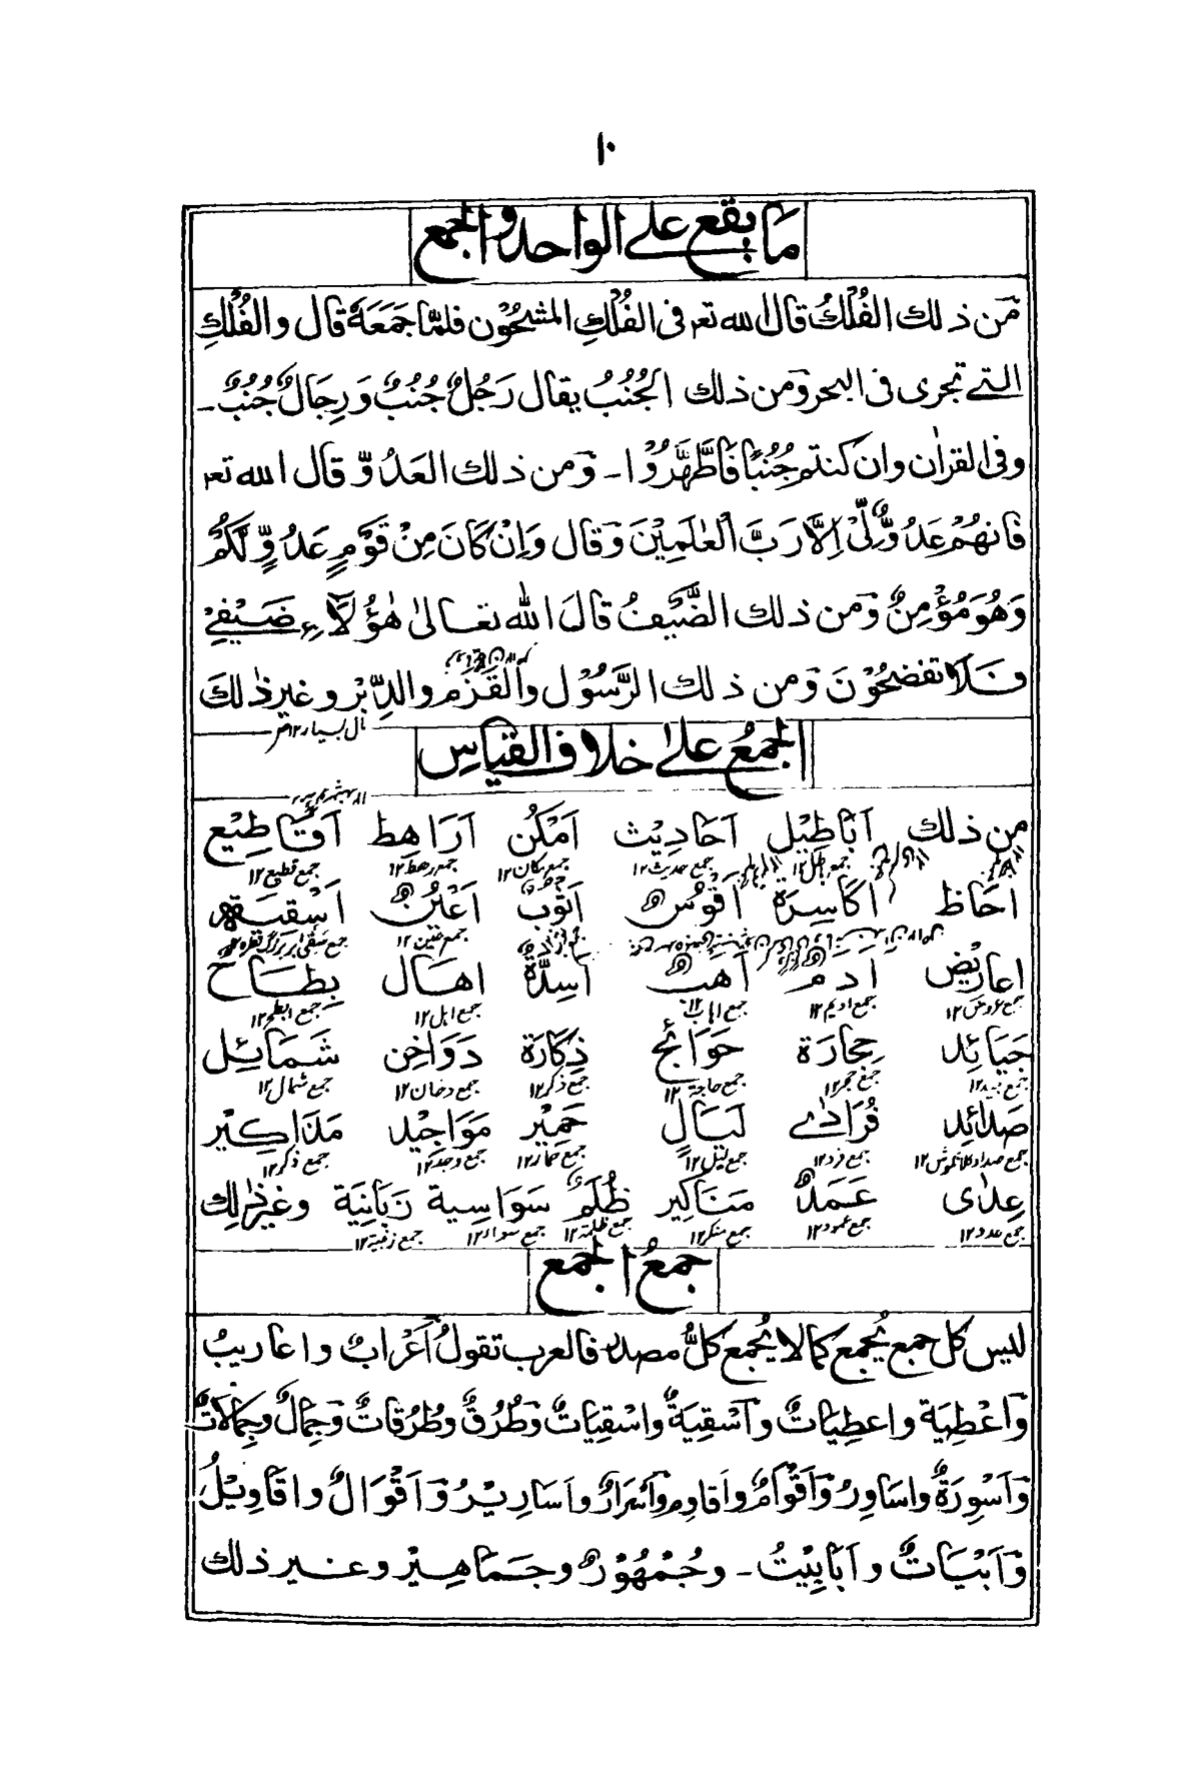 ١٠
ما يقع على الواحد والجمع
وَمن ذلك الفُلْكُ قال الله تعـ فى الفُلْكِ المشحُوْن فلمّا جَمَعَهٗ قال والفُلْكِ
التے تجرى فى البحر وَمن ذلك الجُنُبُ يقال رَجُلٌ جُنُبٌ وَرِجَالٌ جُنُبٌ ـ
وفى القراٰن وان كنتم جُنُبًا فَاطَّهَّرُوْا ـ وَمن ذلك العَدُوّ قال الله تعـ
فَاِنهُمْ عَدُوٌّ لِّىْ اِلَّا رَبَّ الْعٰلَمِيْنَ وَقال وَاِنْ كَانَ مِنْ قَوْمٍ عَدُوٍّ لَّكُمْ
وَهُوَ مُؤْمِنٌ وَمن ذلك الضَّيْفُ قالَ الله تعالىٰ هٰؤُلَآءِ ضَيْفِىْ
فَلَا تفضحُوْنَ وَمن ذلك الرَّسُوْل والقَزَم والدِّبْر وغير ذٰلكَ
مال بسيار ١٢
الجمعُ علىٰ خلاف القياس
من ذلك اَبَاطِيْل اَحَادِيْث اَمْكُن اَرَاهِط اَقَاطِيْع
جمع باطل ١٢ جمع حديث ١٢ جمع مكان ١٢ جمع رهط ١٢ جمع قطيع ١٢
احَاظ اَكَاسِرَة اَقْوُسٌ اَثْوُبٌ اَعْيُنٌ اَسْقِيَة
جمع عين ١٢
اعَارِيْض اَدَم اَهَب اَسِدَّةٌ اهَال بِطَاح
جمع عروض ١٢ جمع اديم ١٢ جمع اهاب ١٢ جمع اہل ١٢ جمع ابطح ١٢
جَيَائِد حِجَارَة حَوَائِج ذِكَارَة دَوَاخِن شَمَائِل
جمع جيد ١٢ جمع حجر ١٢ جمع حاجة ١٢ جمع ذكر ١٢ جمع دخان ١٢ جمع شمال ١٢
صَدَائِد فُرَادٰے لَيَالٍ حَمِيْر مَوَاجِيْد مَذَاكِيْر
جمع فرد ١٢ جمع ليل ١٢ جمع حمار ١٢ جمع وجد ١٢ جمع ذكر ١٢
عِدٰى عَمَدٌ مَنَاكِير ظُلَم سَوَاسِية زَبَانِيَة وغير ذٰلِك
جمع عدو ١٢ جمع عمود ١٢ جمع منكر ١٢ جمع ظلمة ١٢ جمع سواء ١٢ جمع زبنية ١٢
جمعُ الجمع
ليس كل جمع يُجمع كما لا يُجمع كلُّ مصدر فالعرب تقولُ اَعْرَابٌ واعاريبُ
وَاَعْطِيَة واعطِيَاتٌ وَاَسْقِيَةٌ واسْقِيَاتٌ وَطُرُقٌ وطُرُقاتٌ وَجِمَالٌ وجِمَالَاتٌ
وَاَسْوِرَةٌ واسَاوِرُ وَاَقْوَامٌ واَقاوِم وَاَسْرَارٌ واَسَارِيْرُ وَاَقْوَالٌ واقَاوِيْلُ
وَاَبْيَاتٌ واَبَابِيْتُ ـ وجُمْهُوْرٌ وجَمَاهِيْر وغير ذلك